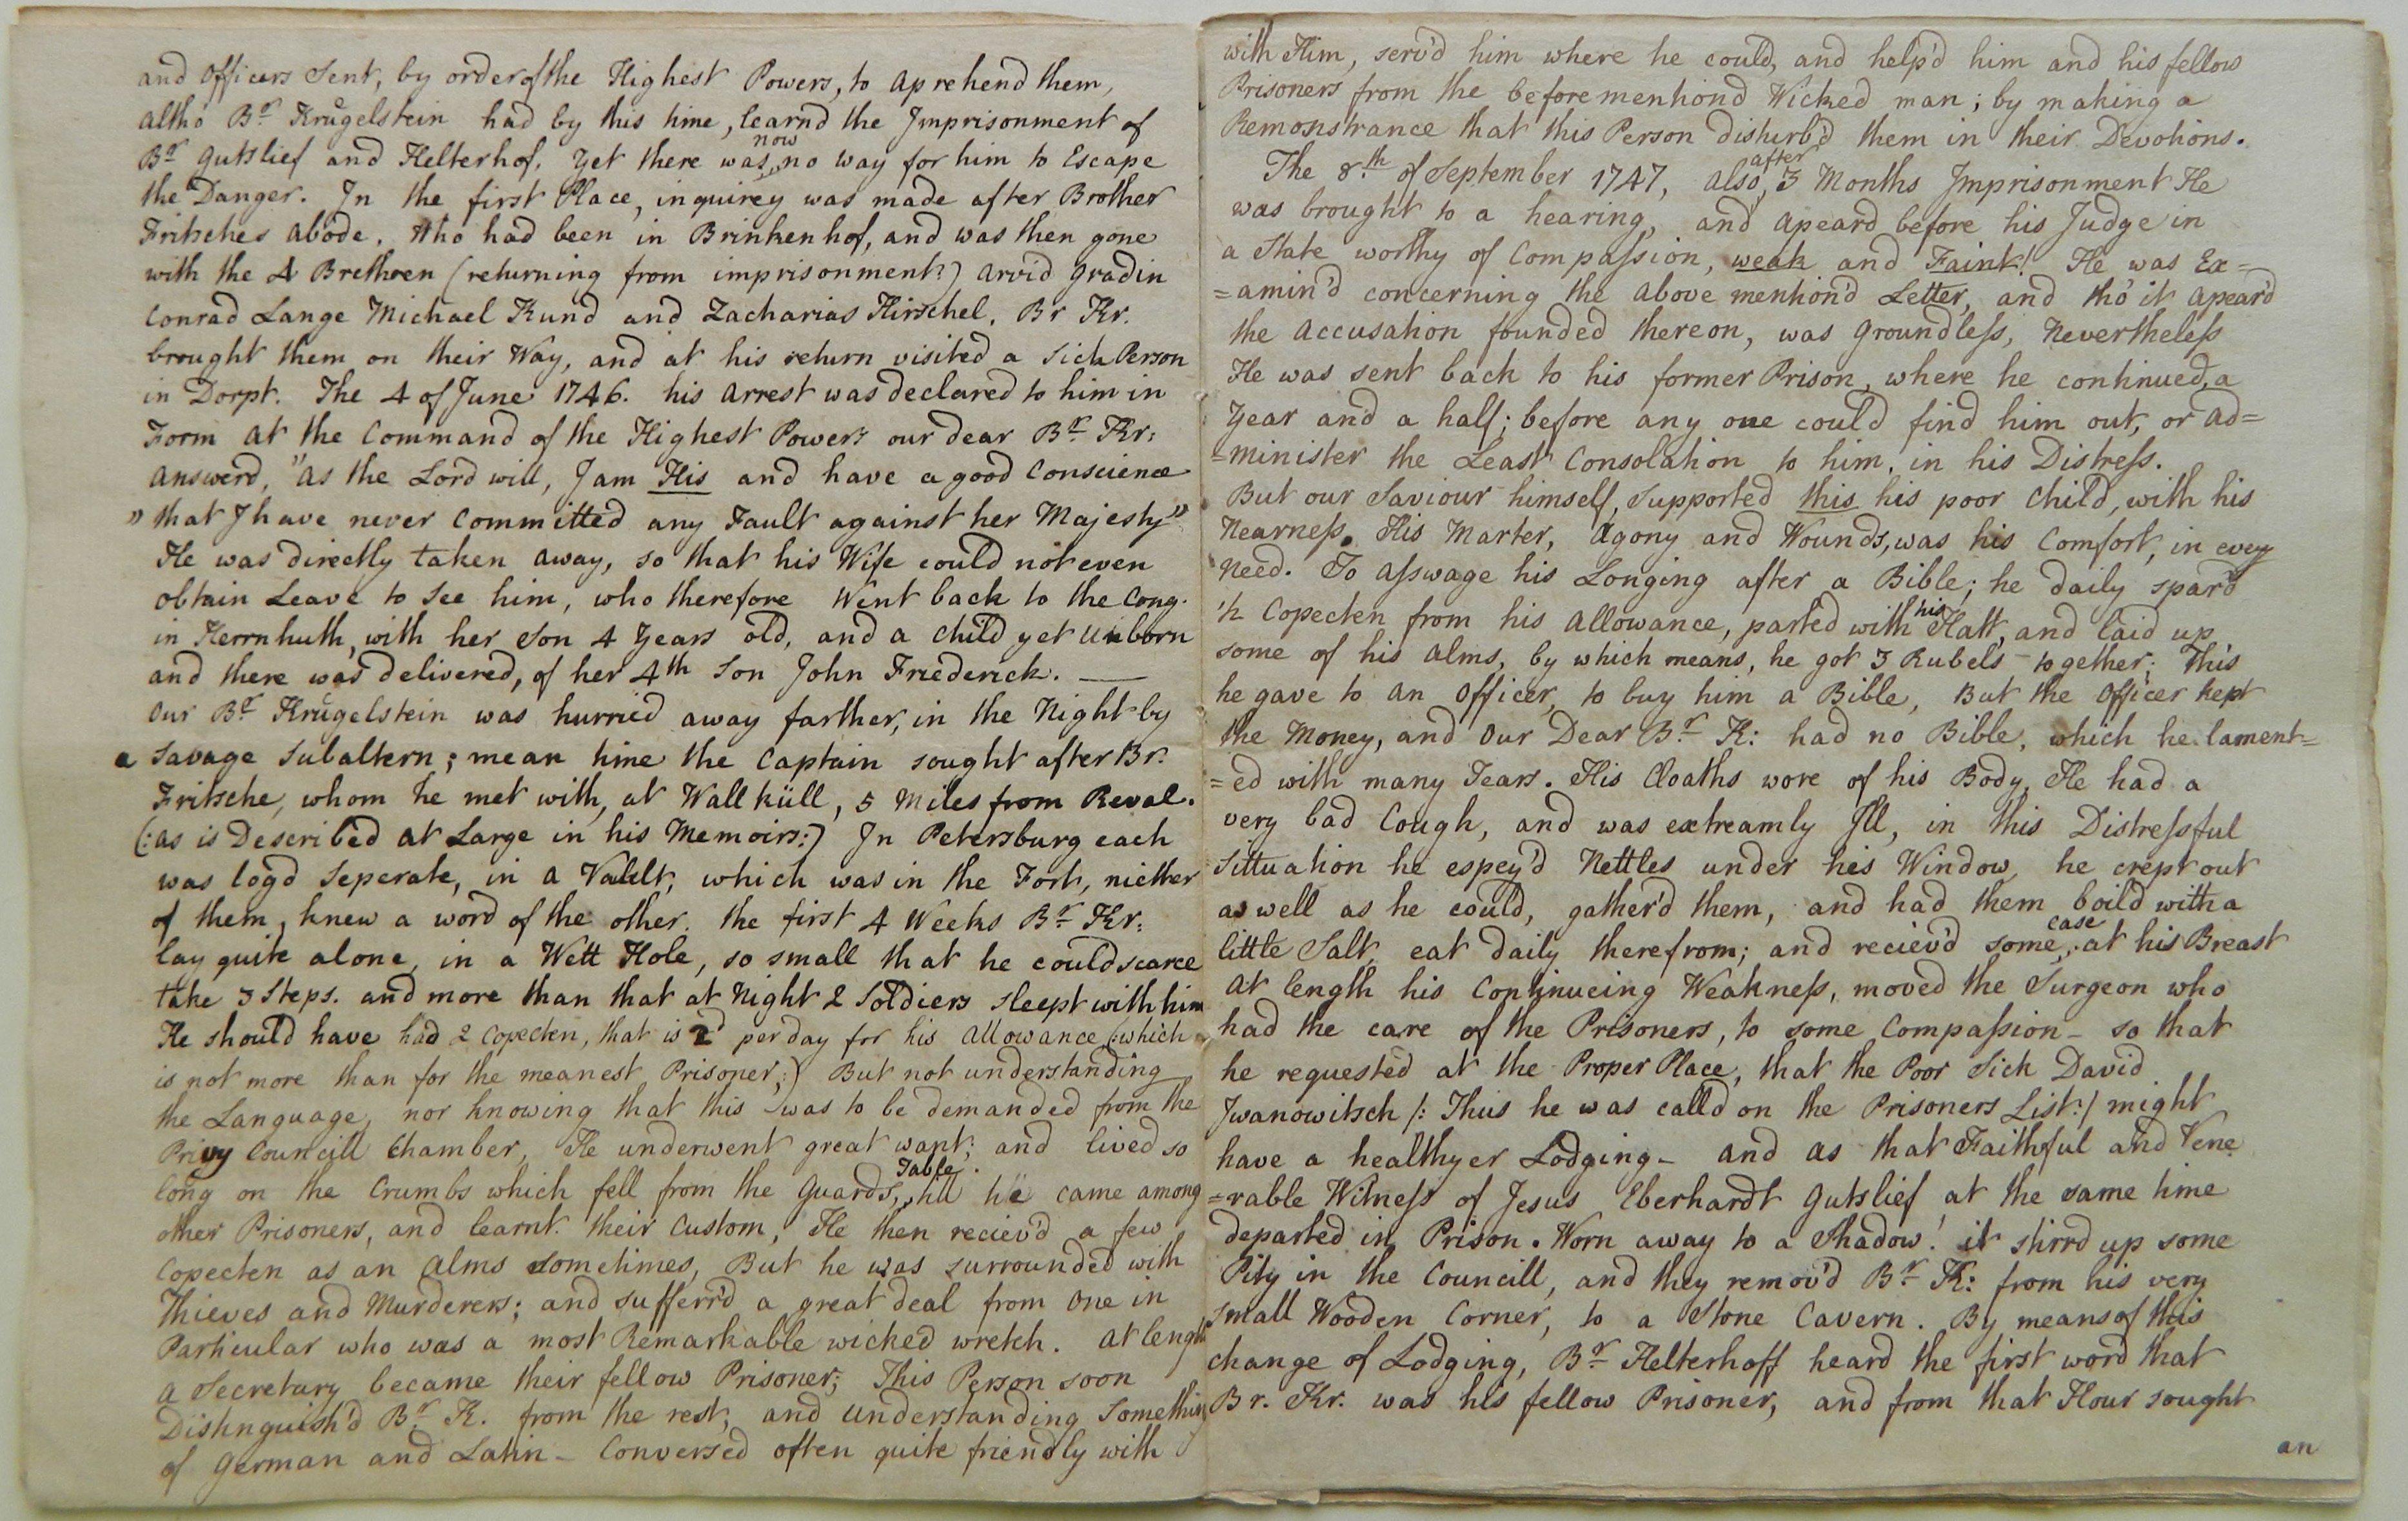 and Officers Sent, by order of the Highest Powers, to aprehend them,
altho Br. Krügelstein had by this time, learnd the Imprisonment of
Br Gutslief and Helterhof. Yet there was now no way for him to Escape
the Danger. In the first Place, inquirey was made after Brother
Fritsches abode. Who had been in Brinkenhof, and was then gone
with the 4 Brethren (returning from imprisonment:) Arvid Gradin
Conrad Lange Michael Kund and Zacharias Hirschel. Br Kr.
brought them on their Way, and at his return visited a Sick Person
in Dorpt. The 4 of June 1746. his Arrest was declared to him in
Form at the Command of the Highest Powers our dear Br. Kr:
answerd, "as the Lord will, I am His and have a good Conscience
" that I have never Committed any Fault against her Majesty"
He was directly taken away, so that his Wife could not even
obtain Leave to See him, who therefore Went back to the Cong.
in Herrnhuth, with her Son 4 Years old, and a Child yet unborn
and there was delivered, of her 4th Son John Friederick. —
Our Br. Krügelstein was hurried away farther, in the Night by
a Savage Subaltern; mean time the Captain sought after Br.
Fritsche, whom he met with, at Wallküll, 5 Miles from Reval.
(:as is Described at Large in his Memoirs:) In Petersburg each
was logd Seperate, in a Vault, which was in the Fort, niether
of them, knew a word of the other. the first 4 Weeks Br. Kr:
lay quite alone, in a Wett Hole, so small that he could scarce
take 3 Steps. and more than that at Night 2 Soldiers sleept with him
He should have had 2 Copecten, that is 2d per day for his Allowance (:which
is not more than for the meanest Prisoner;) But not understanding
the Language, nor knowing that this was to be demanded from the
Privy Councill Chamber, He underwent great want; and lived so
long on the Crumbs which fell from the Guards, Table. till he came among
other Prisoners, and learnt their Custom, He then reciev'd a few
Copecten as an Alms sometimes, But he was surrounded with
Thieves and Murderers; and sufferr'd a great deal from One in
Particular who was a most Remarkable wicked wretch. At length
a Secretary became their fellow Prisoner; This Person soon
Distinguish'd Br. K. from the rest, and Understanding Something
of German and Latin – Conversed often quite friendly with
with Him, serv'd him where he could, and help'd him and his fellow
Prisoners from the beforementiond Wicked man; by making a
Remonstrance that this Person disturb'd them in their Devotions.
The 8.th of September 1747, also, after 3 Months Imprisonment He
was brought to a hearing, and apeard before his Judge in
a State worthy of Compassion, weak and Faint! He was Ex=
=amin'd concerning the above mention'd Letter, and tho' it apear'd
the accusation founded thereon, was Groundless, Nevertheless
He was sent back to his former Prison, where he continued, a
Year and a half; before any one could find him out, or ad=
=minister the Least Consolation to him, in his Distress.
But our Saviour himself, Supported this his poor Child, with his
Nearness. His Marter, Agony and Wounds, was his Comfort, in evey
need. To asswage his Longing after a Bible; he daily spar'd
1/2 Copecten from his Allowance, parted with his Hatt, and laid up
some of his Alms, by which means, he got 3 Rubels together; This
he gave to an Officer, to buy him a Bible, But the Officer kept
the Money, and Our Dear Br. K: had no Bible, which he lament=
=ed with many Tears. His Cloaths wore of his Body, He had a
very bad Cough, and was extreamly Ill, in this Distressful
Sittuation he espey'd Nettles under his Window, he crept out
as well as he could, gather'd them, and had them boild with a
little Salt, eat daily therefrom; and reciev'd some ease, at his Breast
At length his Continueing Weakness, moved the Surgeon who
had the care of the Prisoners, to some Compassion – so that
he requested at the Proper Place, that the Poor Sick David
Iwanowitsch /: Thus he was calld on the Prisoners List:/ might
have a healthyer Lodging – and as that Faithful and Vene
=rable Witness of Jesus Eberhardt Gutslief at the same time
departed in Prison. Worn away to a Shadow! it stirrd up some
Pity in the Councill, and they remov'd Br. K: from his very
small Wooden Corner, to a Stone Cavern. By means of this
change of Lodging, Br. Helterhoff heard the first word that
Br. Kr. was his fellow Prisoner, and from that Hour sought
an